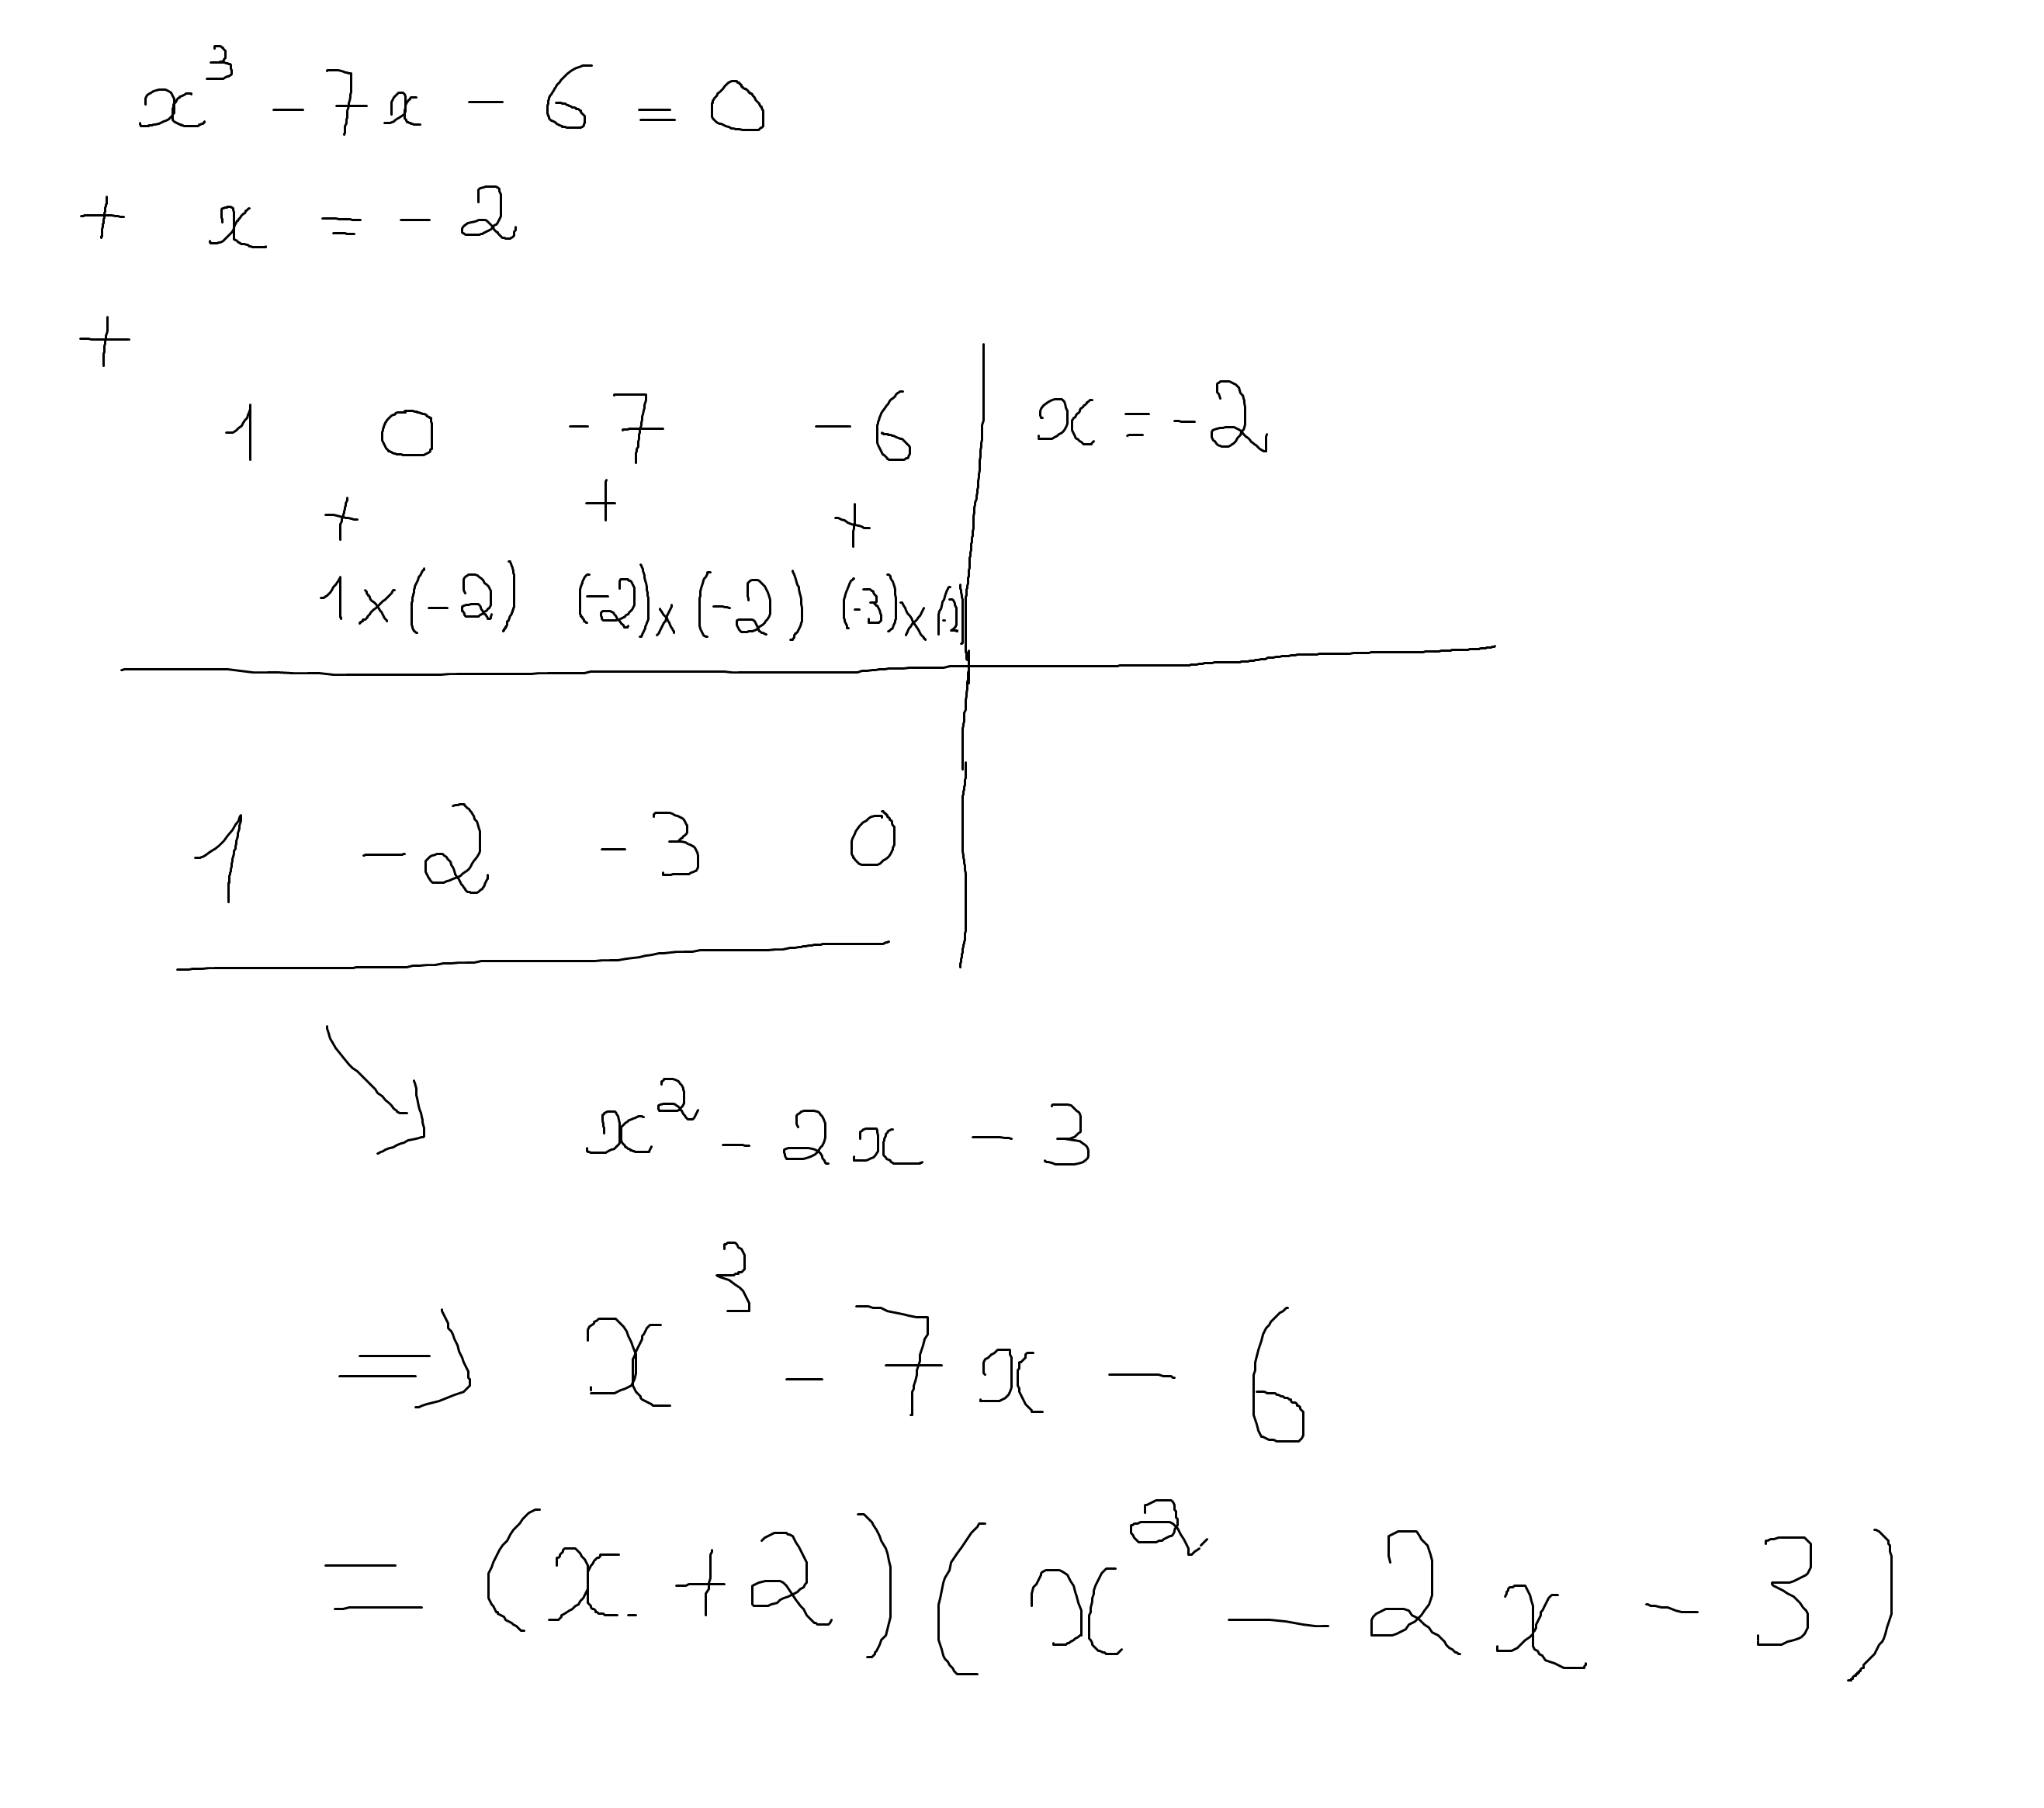 x³ - 7x - 6 = 0
+ x = - 2
+
1 0 - 7 - 6 x = - 2
+ + +
1 × (-2) (-2) × (-2) (-3) × (-2)
1 - 2 - 3 0
↘ x² - 2x - 3
⇒ x³ - 7x - 6
= (x + 2)(x² - 2x - 3)